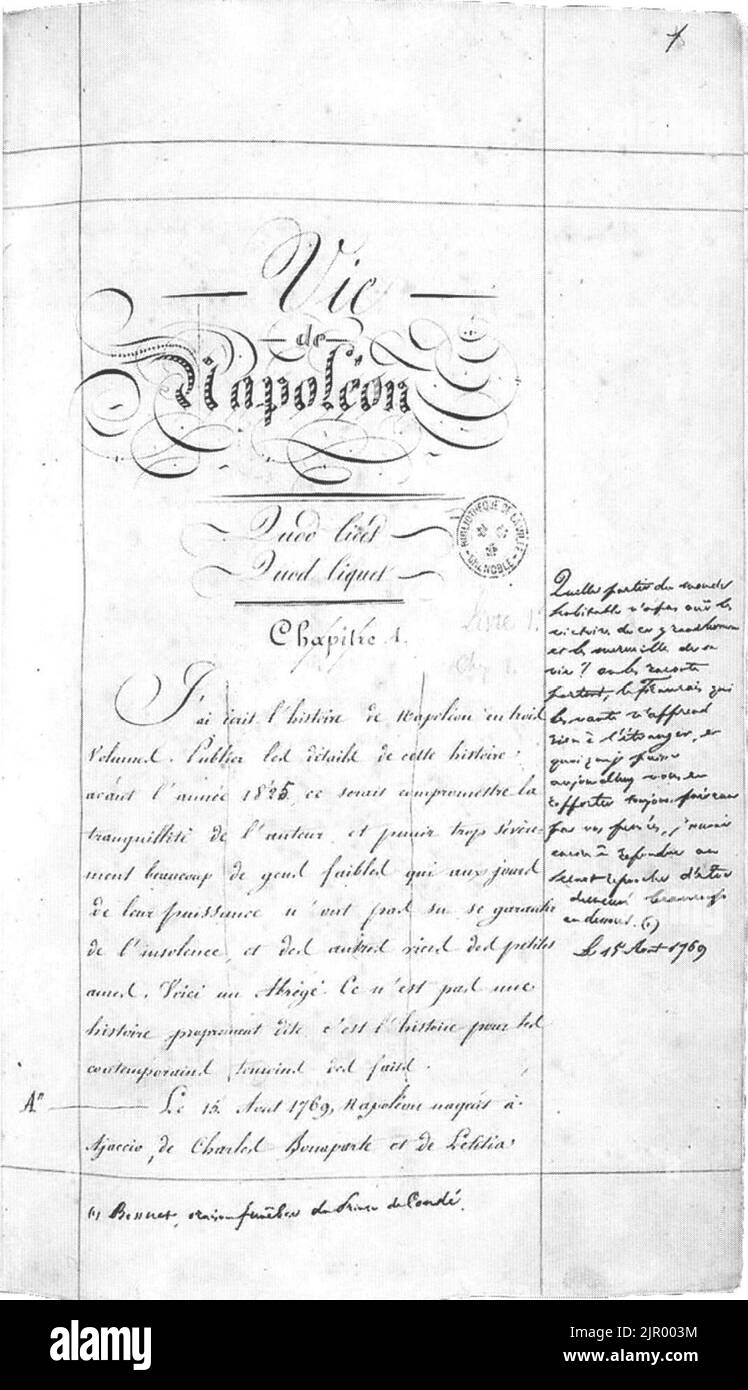 1
Vie
de
Napoléon
Quod licet
Quod liquet
BIBLIOTHÈQUE DE LA VILLE
GRENOBLE
Chapitre 1.
Livre 1.
J'ai écrit l'histoire de Napoléon en trois
Volumes. Publier les détails de cette histoire
avant l'année 1825, ce serait compromettre la
tranquillité de l'auteur et punir trop sévère-
ment beaucoup de gens faibles qui aux jours
de leur puissance n'ont pas su se garantir
de l'insolence, et des autres vices des petites
ames. Voici un Abrégé. Ce n'est pas une
histoire proprement dite, c'est l'histoire pour les
contemporains temoins des faits.
Le 15 Aout 1769, Napoléon naquit à
Ajaccio, de Charles Bonaparte et de Letitia
Quelle partie du monde
habitable n'a pas ouï les
victoires de ce grand homme
et les merveilles de sa
vie ? on les raconte
partout, le Français qui
les vante n'apprend
rien à l'étranger, et
quoi que je puisse
aujourd'hui vous en
rapporter toujours prévenu
par vos pensées, j'aurai
encore à répondre au
secret reproche d'être
demeuré beaucoup
au dessous. (1)
Le 15 Aout 1769
(1) Bossuet, oraison funèbre du Prince de Condé.
alamy
Image ID: 2JR003M
www.alamy.com